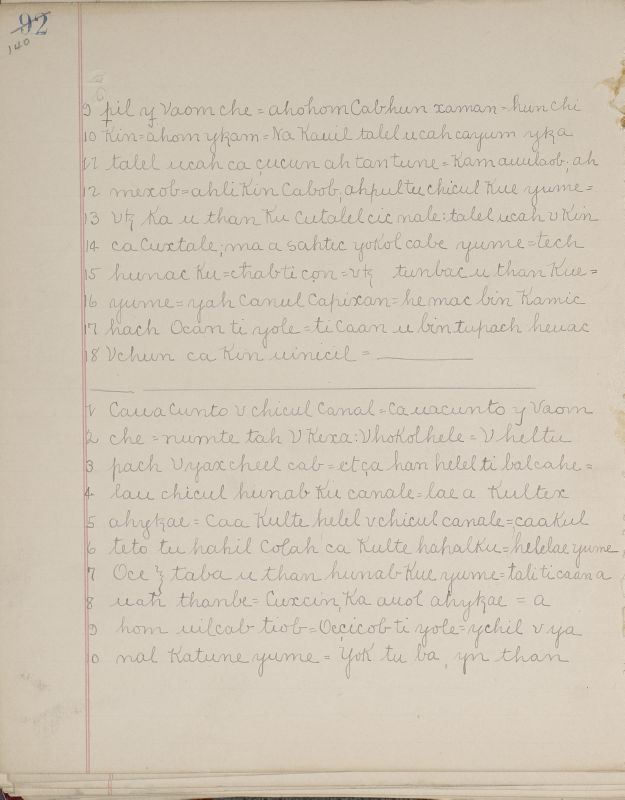 92
140
9 pil y Vaom che = ahohom Cabhun xaman = hun chi
10 Kin = ahom ykam = Na Kauil talel ucah cayum yka
11 talel ucah ca çucun ah tan tune = Kam auulaob; ah
12 mexob = ahli Kin Cabob, ahpultu chicul Kue yume =
13 Vtꜩ Ka u than Ku Cutalel cic nale: talel ucah v Kin
14 ca Cuxtale; ma a sahtic yokol cabe yume = tech
15 hunac Ku = chabti çon = vtꜩ tunbac u than Kue =
16 yume = yah Canul Capixan = he mac bin Kamic
17 hach Ocan ti yole = ti Caan u bin tupach heuac
18 Vchun ca Kin uinicil =
1 Caua Cunto v chicul Canal = Ca uacunto y Vaom
2 che = numte tah V Kexa: Vhokol hele = V heltu
3 pach Vyax cheel cab = etça han helel ti balcahe =
4 lau chicul hunab Ku canale = lae a Kultex
5 ahyꜩae = Caa Kulte helel v chicul canale = caa Kul
6 teto tu hahil Colah ca Kulte hahal Ku = helelae yume
7 Oce ꜩ taba u than hunab Kue yume = tali ti caan a
8 uah thanbe = Cuxcin Ka auol ahyꜩae = a
9 hom uilcab tiob = Ocçicob ti yole = ychil v ya
10 nal Katune yume = Yok tu ba, yn than